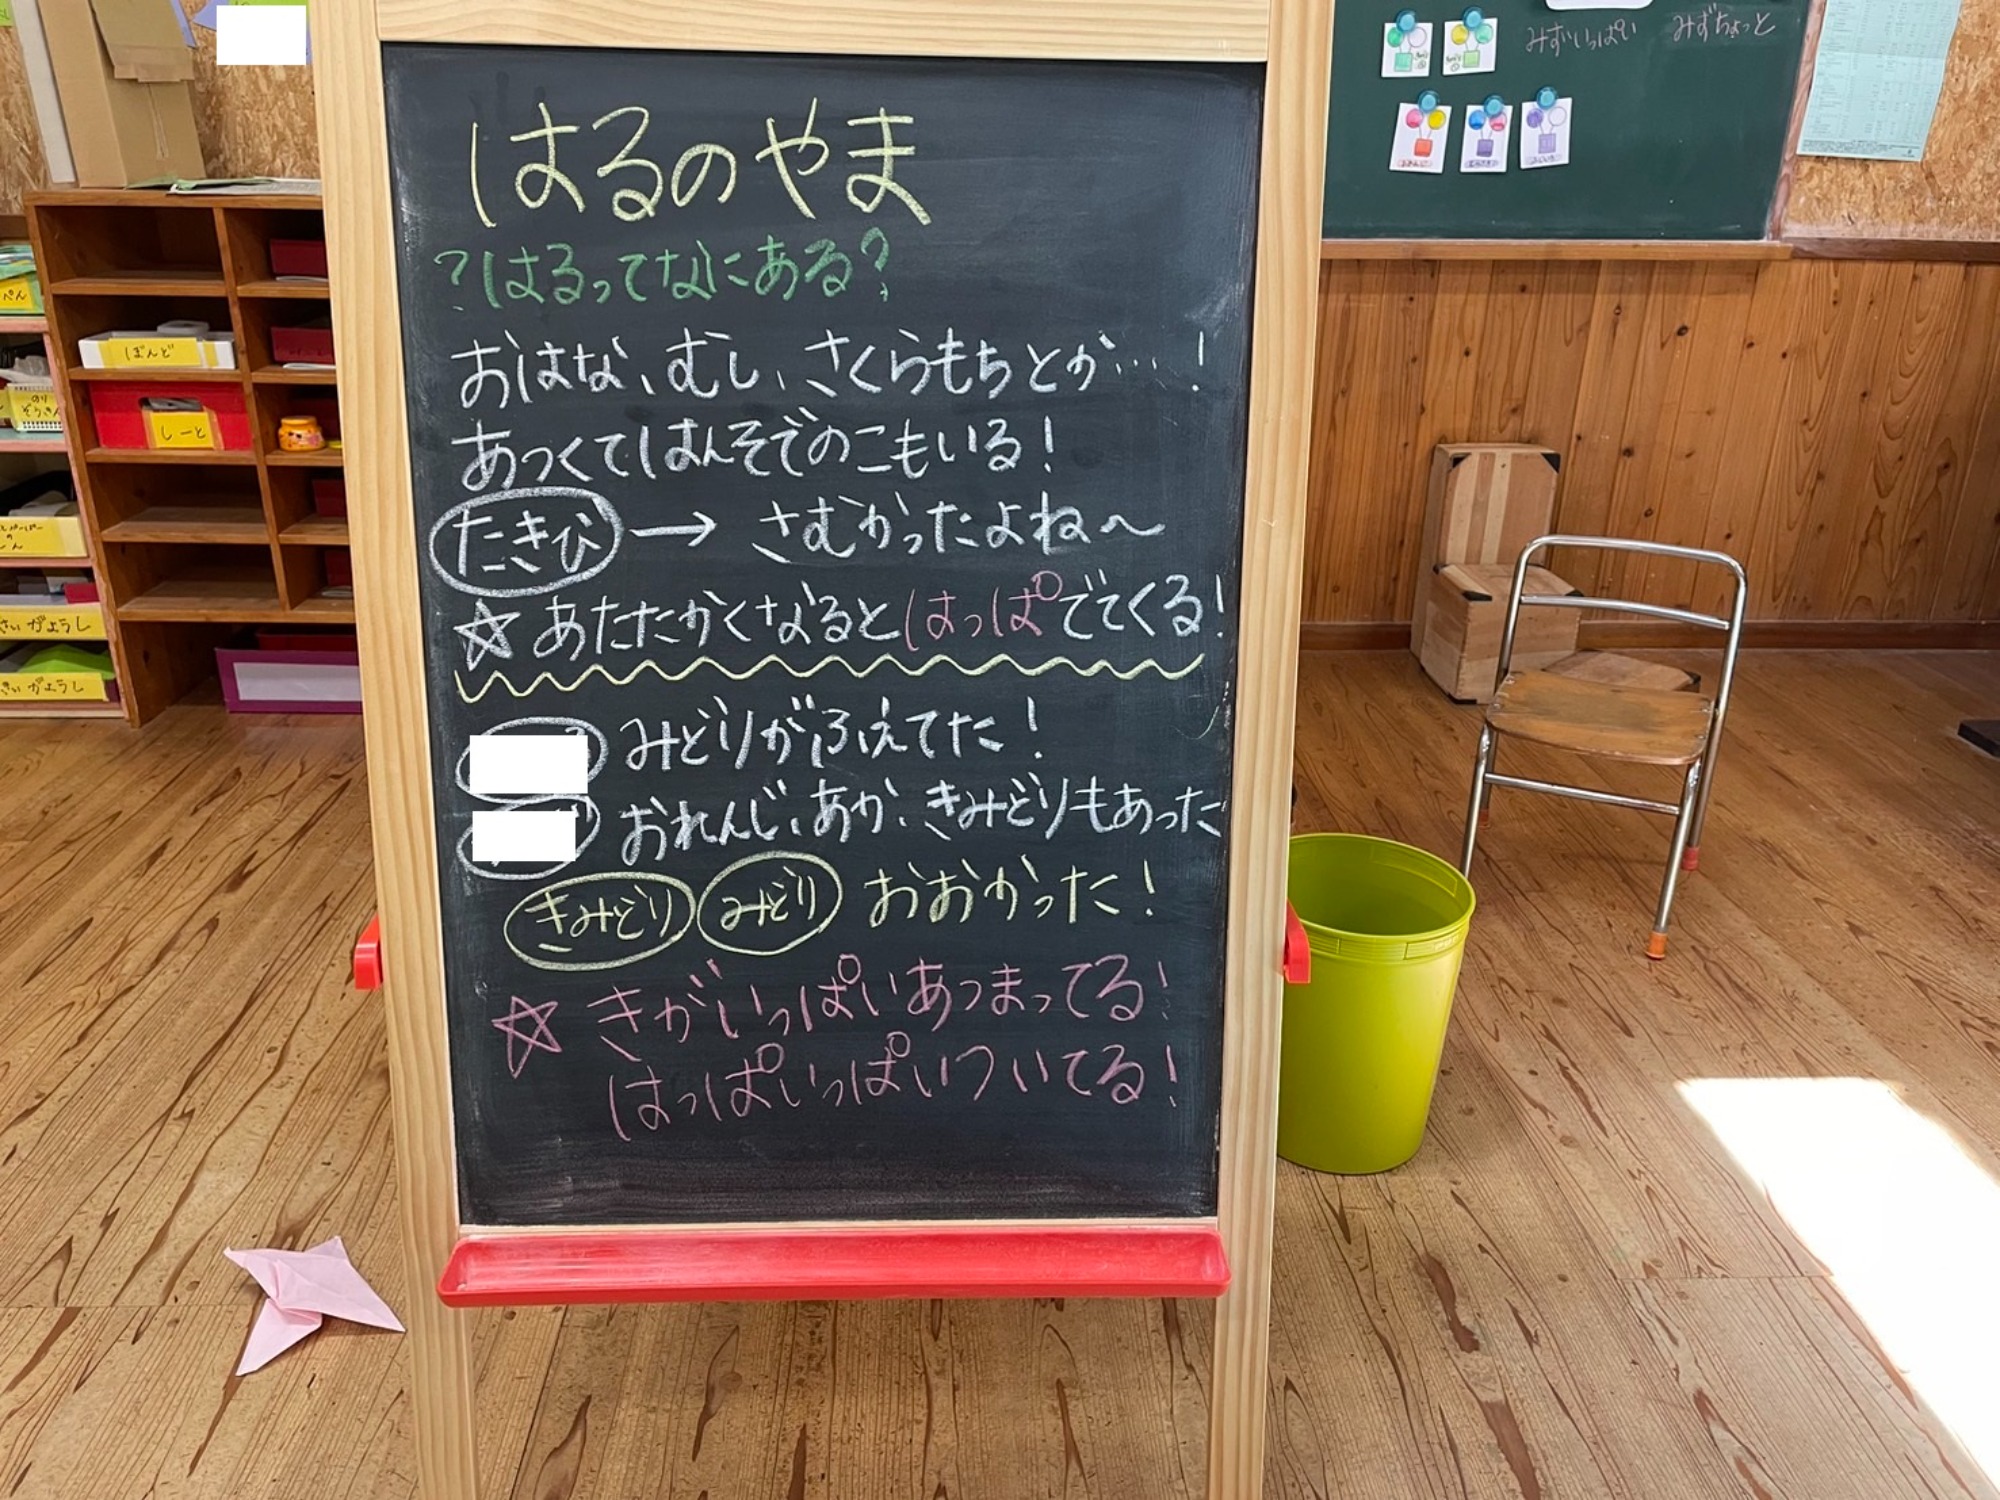 はるのやま
?はるってなにある?
おはな、むし、さくらもちとか…!
あつくてはんそでのこもいる!
たきび → さむかったよね〜
☆あたたかくなるとはっぱでてくる!
みどりがふえてた!
おれんじ、あか、きみどりもあった
きみどり みどり おおかった!
☆きがいっぱいあつまってる!
はっぱいっぱいついてる!
みずいっぱい みずちょっと
ぼんど
しーと
のり
ぞうきん
ぺん
がようし
がようし